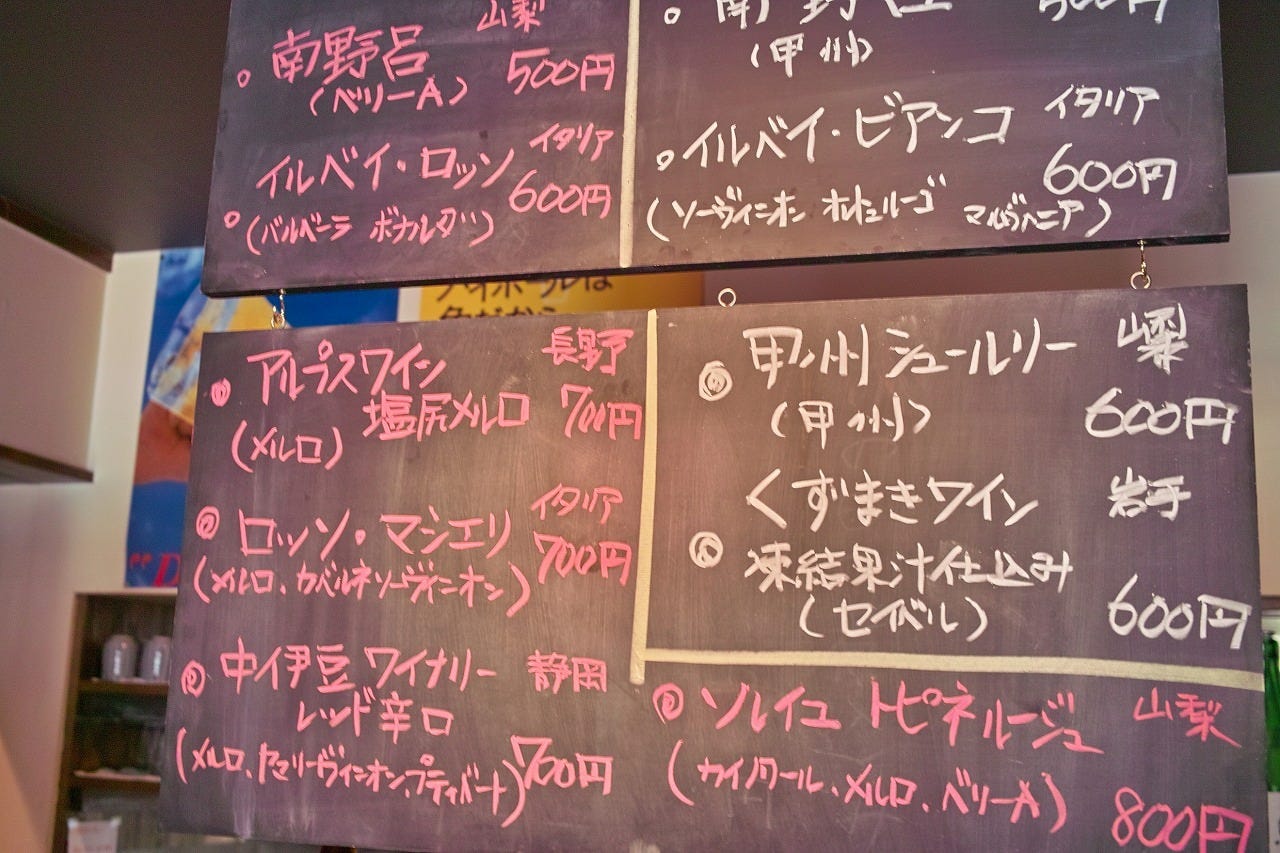 山梨
南野呂
500円
(ベリーA)
イタリア
イルベイ・ロッソ
600円
(バルベーラ ボナルダ)
南野呂
500円
(甲州)
イタリア
イルベイ・ビアンコ
600円
(ソーヴィニオン オルトュルーゴ マルヴァニア)
ハイボールは
角だから
長野
アルプスワイン
塩尻メルロ 700円
(メルロ)
イタリア
ロッソ・マシエリ
700円
(メルロ、カベルネソーヴィニオン)
中伊豆ワイナリー 静岡
レッド辛口
(メルロ、ヤマソーヴィニオン、プティバート) 700円
甲州シュールリー 山梨
(甲州) 600円
くずまきワイン 岩手
凍結果汁仕込み
(セイベル) 600円
ソレイユ トピネルージュ 山梨
(カイノワール、メルロ、ベリーA)
800円